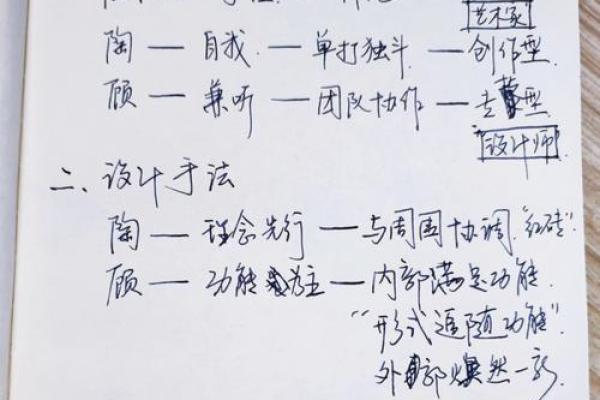 艺术家
陶 — 自我 — 单打独斗 — 创作型
顾 — 兼听 — 团队协作 — 型
"设计师
二、设计手法
陶 — 理念先行 — 与周围协调."红砖".
顾 — 功能为主 — 内部满足功能.
"形式追随功能".
外部焕然一新